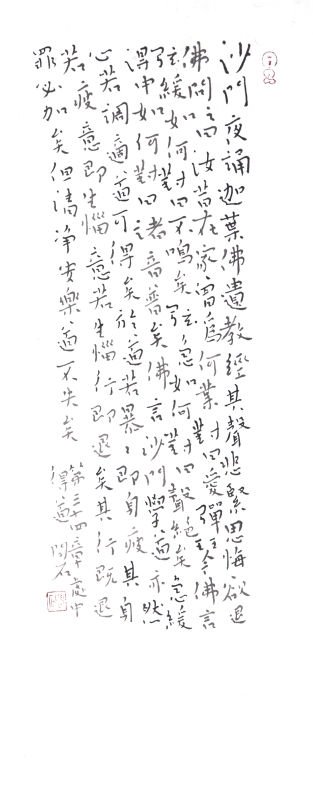 沙門夜誦迦葉佛遺教經其聲悲緊思悔欲退
佛問之曰汝昔在家曾爲何業對曰愛彈琴佛言
弦緩如何對曰不鳴矣弦急如何對曰聲絕矣急緩
得中如何對曰諸音普矣佛言沙門學道亦然
心若調適道可得矣於道若暴〻即身疲其身
若疲意即生惱意若生惱行即退矣其行既退
罪必加矣但清淨安樂道不失矣
第三十四章處中
得道